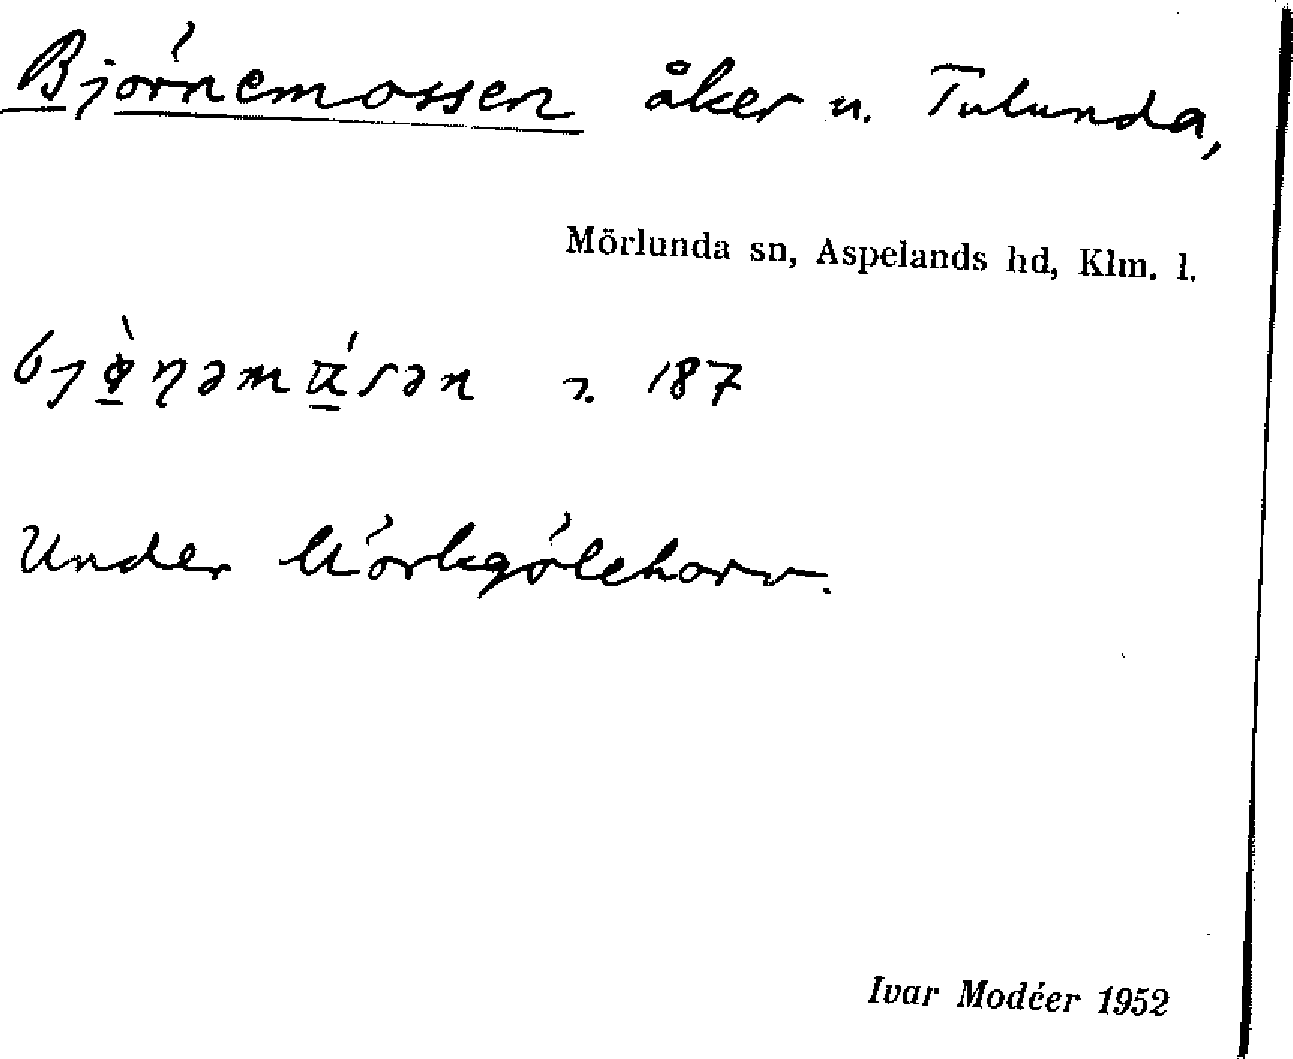 Björnemossen åker u. Tulunda,
Mörlunda sn, Aspelands hd, Klm. l.
187
Under Mörkgölehorv.
Ivar Modéer 1952